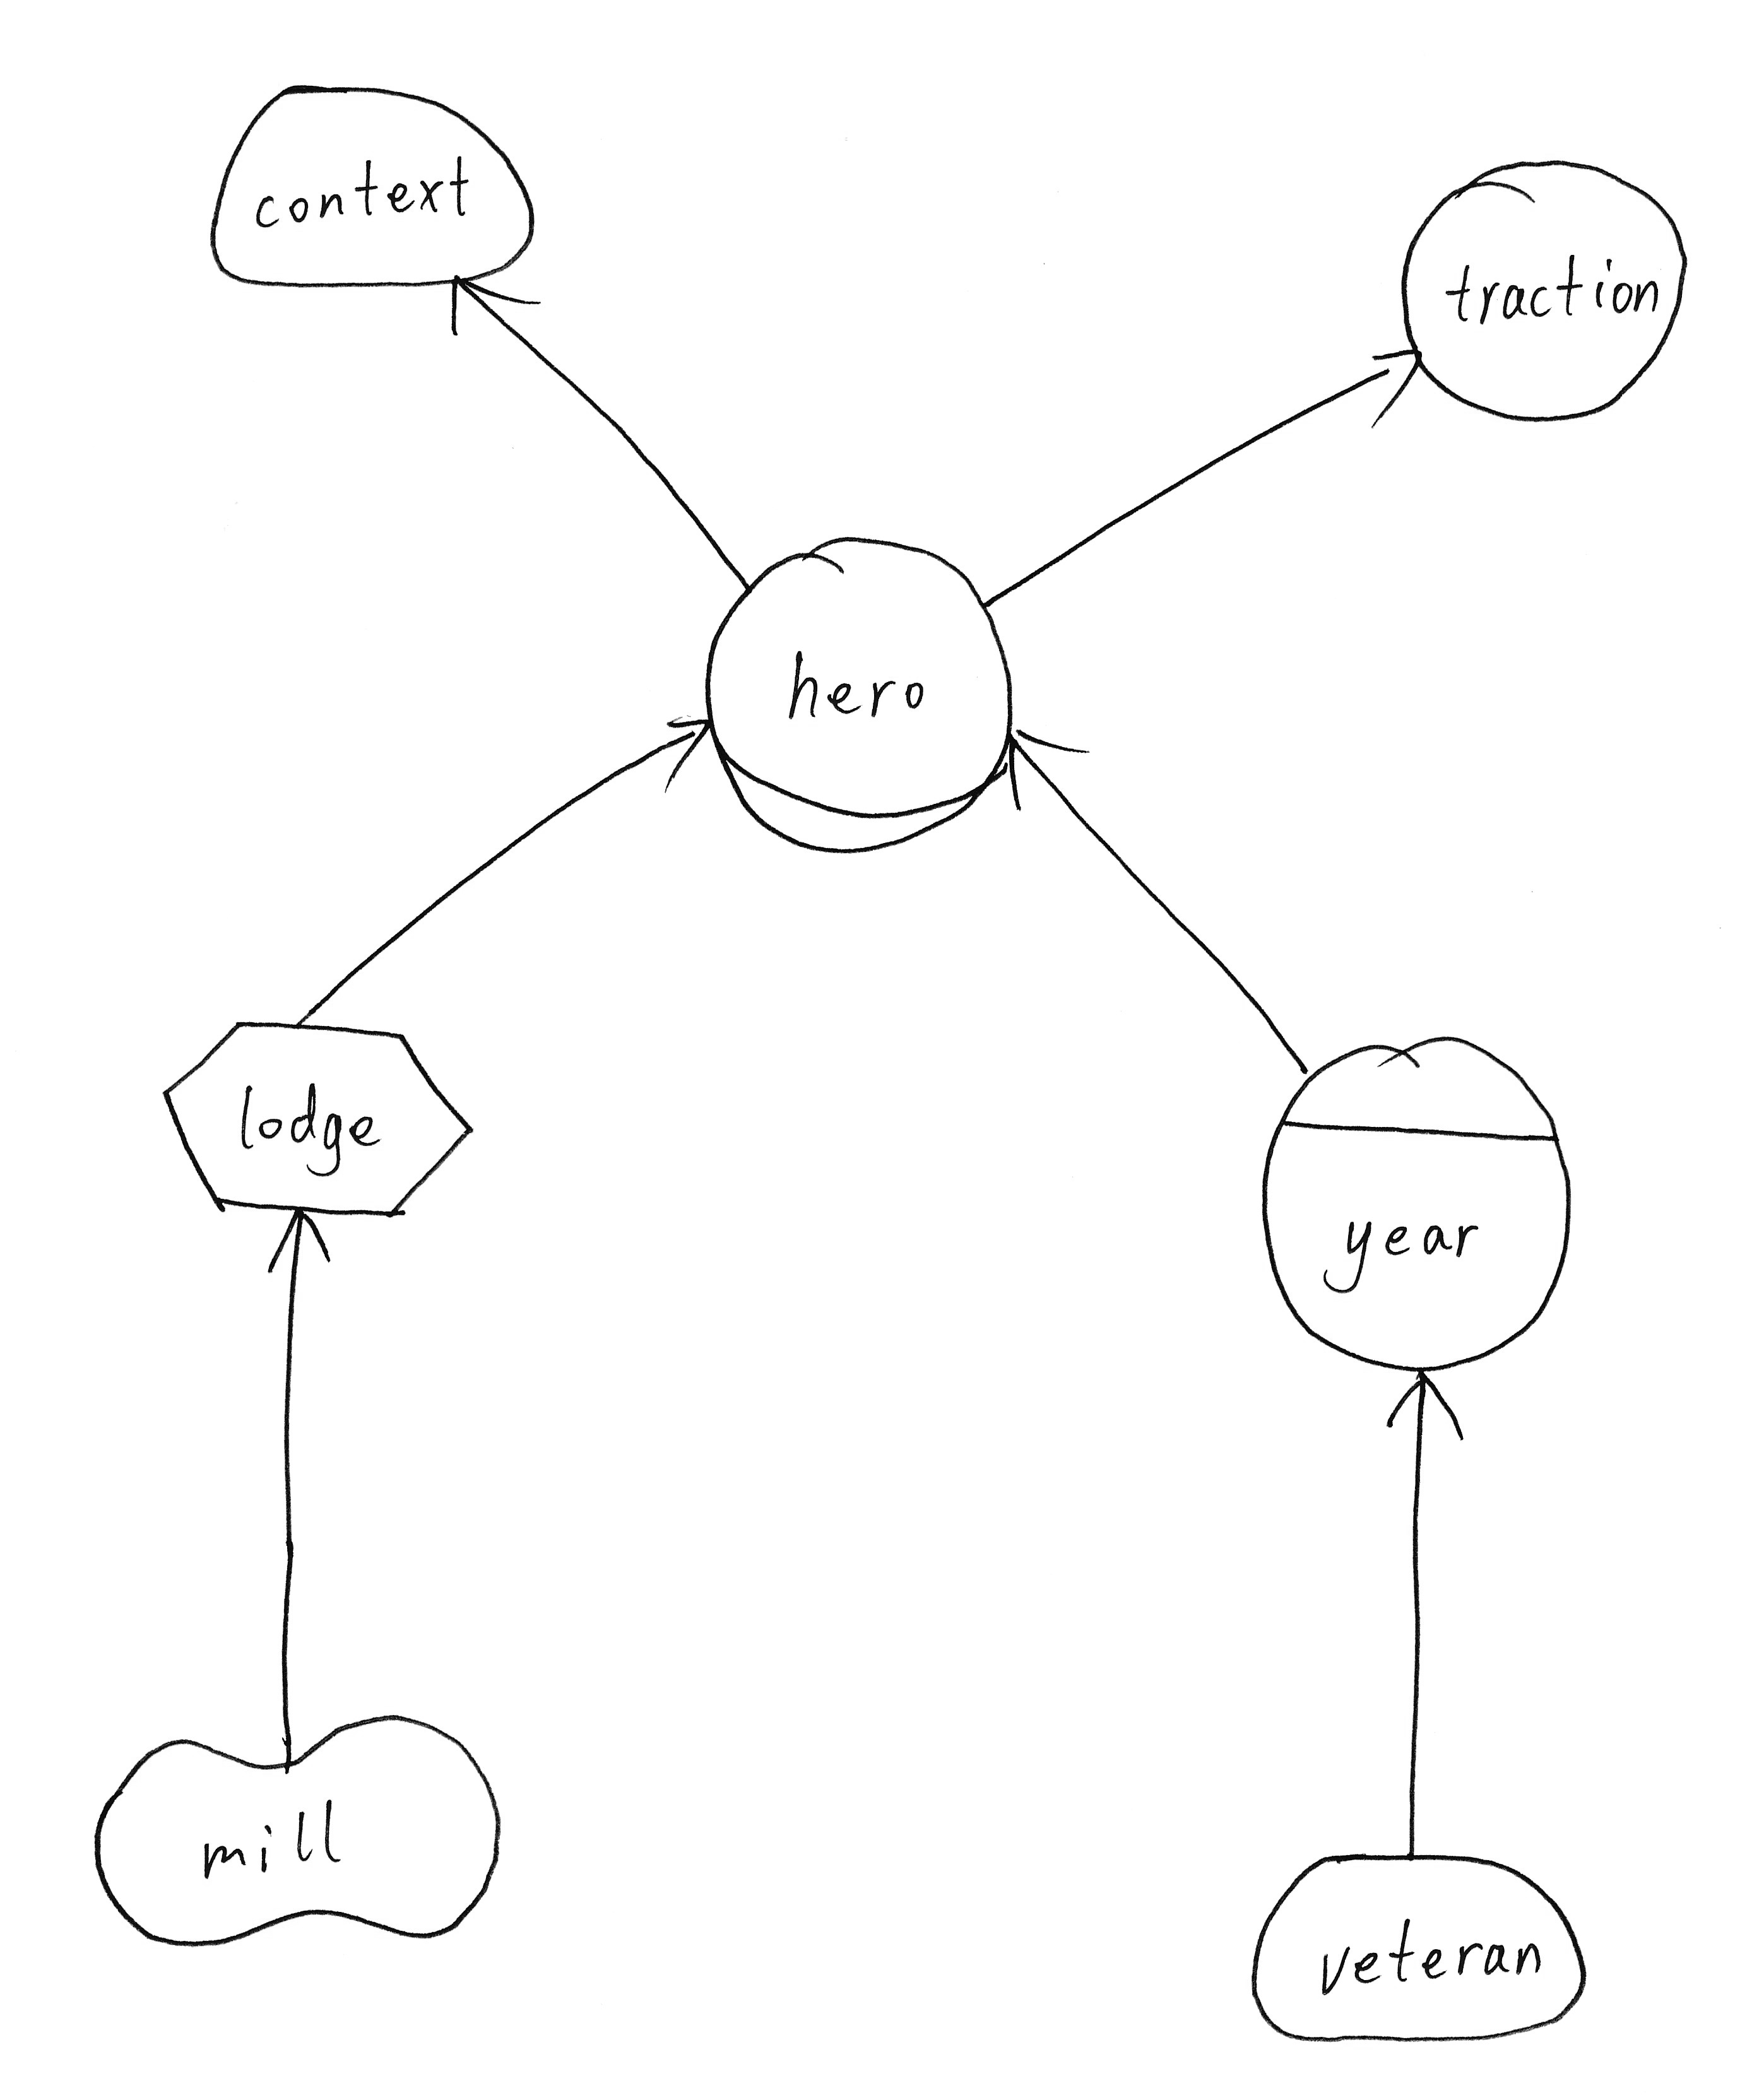 context
traction
hero
lodge
year
mill
veteran